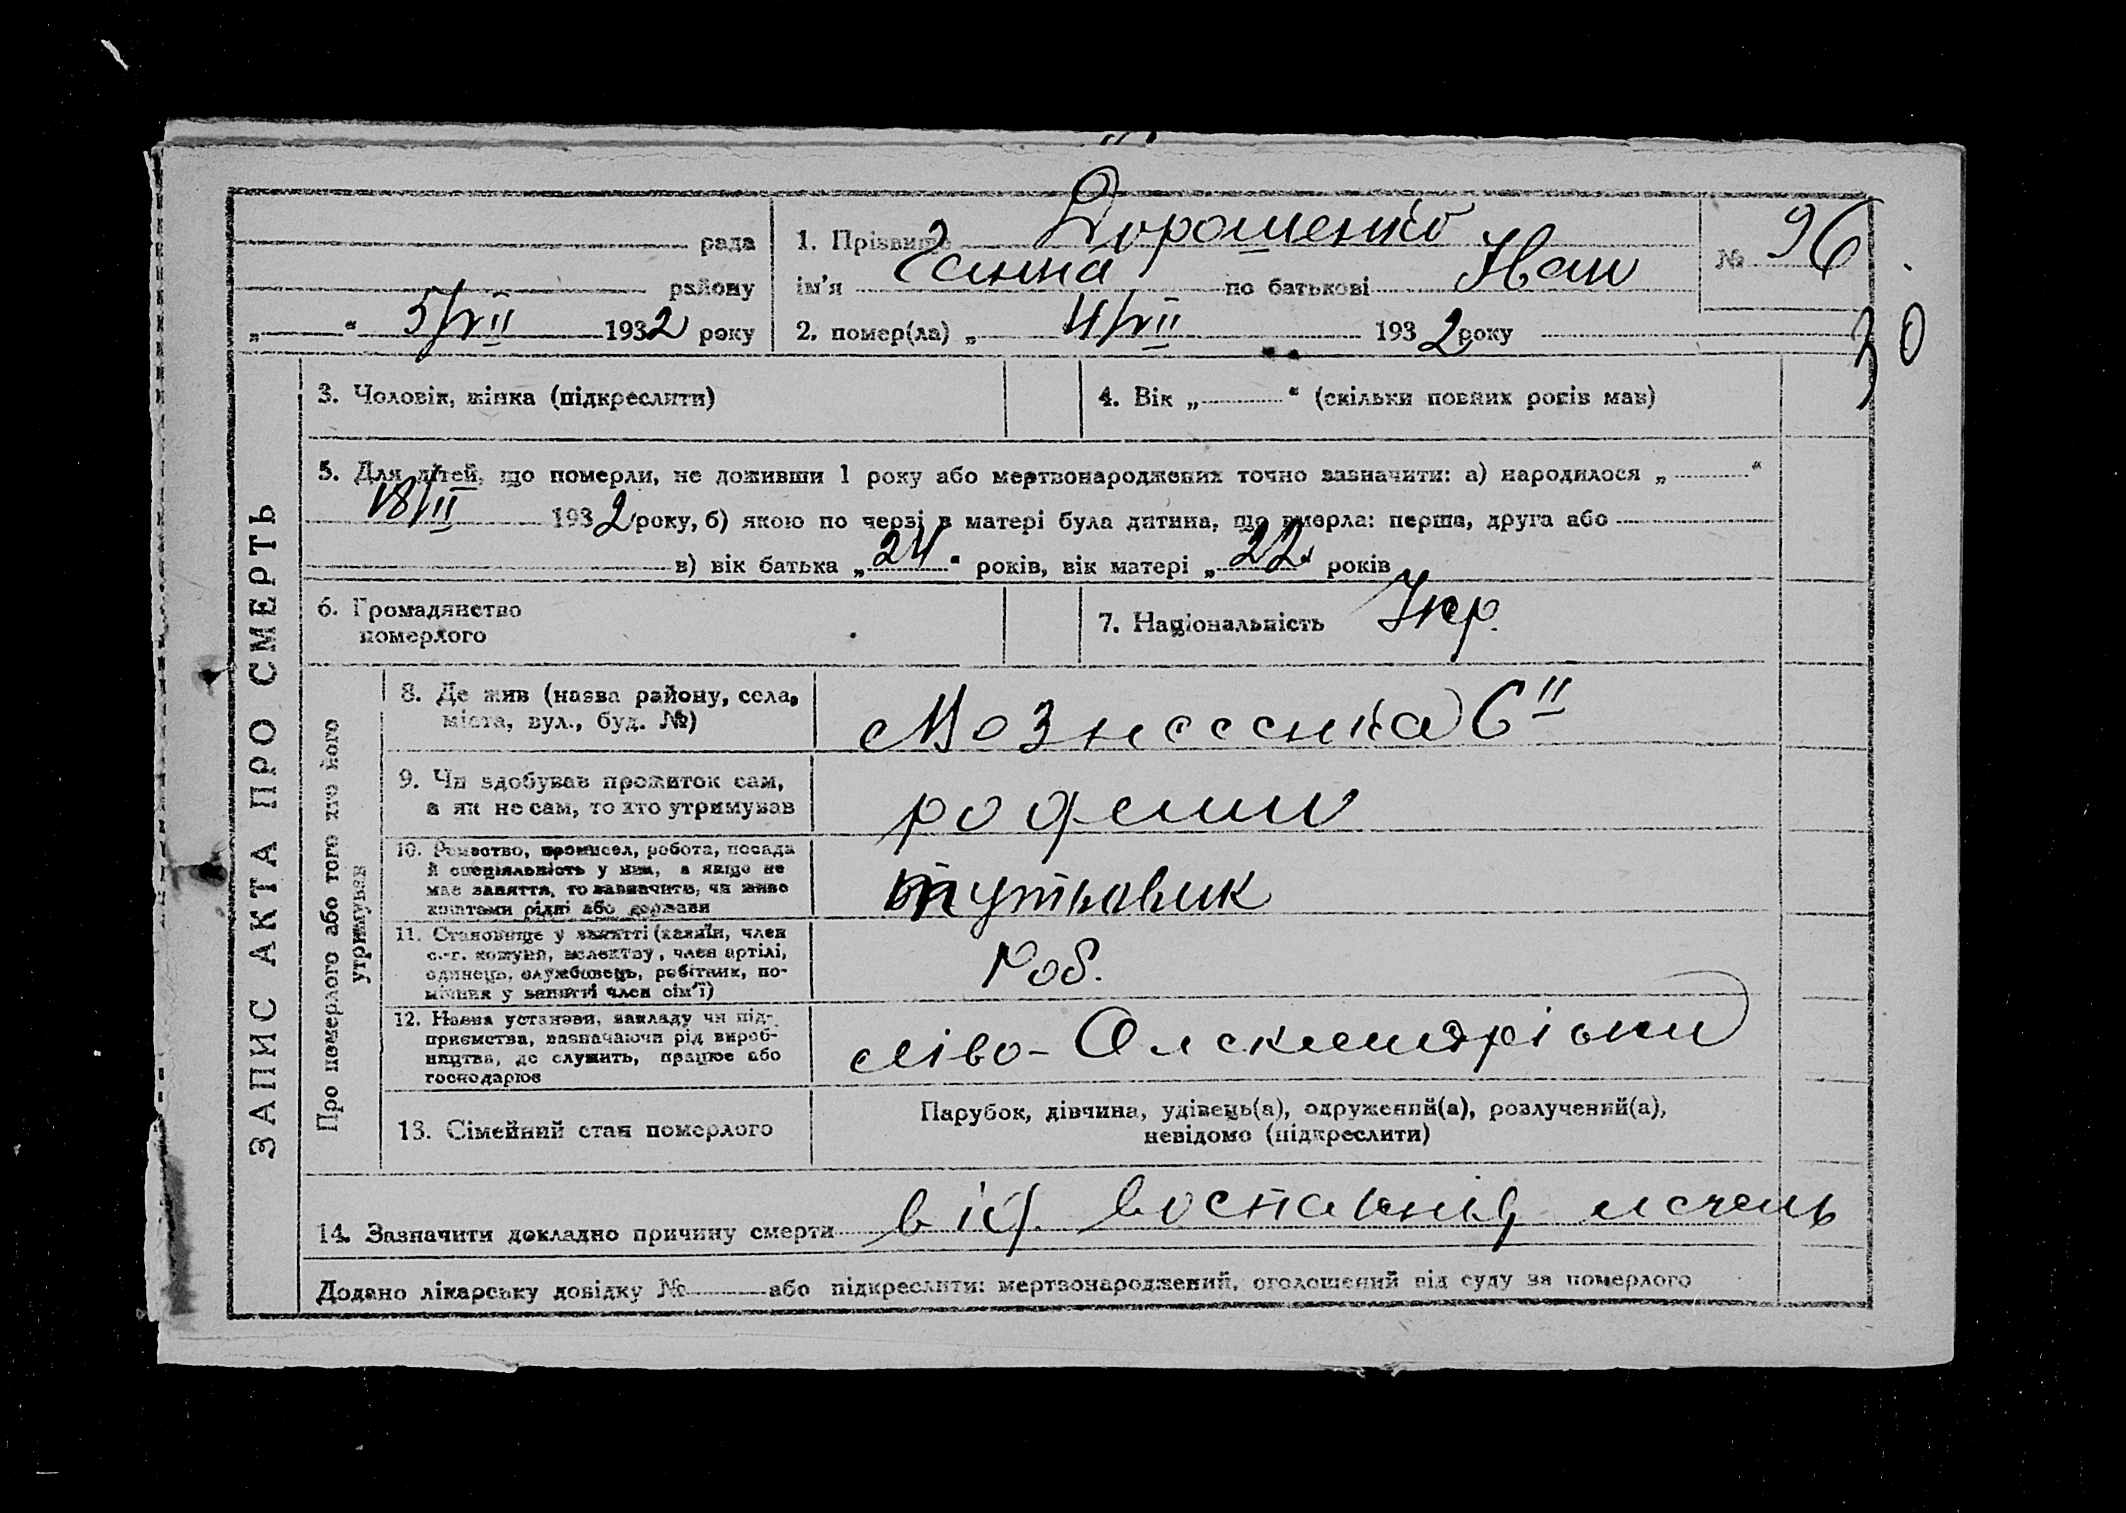 № 96
30
рада
1. Прізвище Дорошенко
району
ім'я Ганна по батькові Іван
„ “ 5/VII 1932 року
2. помер(ла) „ 4/VII 1932 року
ЗАПИС АКТА ПРО СМЕРТЬ
3. Чоловік, жінка (підкреслити)
4. Вік „ “ (скільки повних років мав)
5. Для дітей, що померли, не доживши 1 року або мертвонароджених точно зазначити: а) народилося „ “
18/II 1932 року, б) якою по черзі в матері була дитина, що вмерла: перша, друга або
в) вік батька „24“ років, вік матері „22“ років
6. Громадянство
померлого
7. Національність Укр.
Про померлого або того хто його
утримував
8. Де жив (назва району, села,
міста, вул., буд. №)
Вознесенка
9. Чи здобував прожиток сам,
а як не сам, то хто утримував
родини
10. Ремество, промисел, робота, посада
й спеціяльність у ній, а якщо не
має заняття, то зазначити, чи живе
коштами рідні або держави
11. Становище у занятті (хазяїн, член
с.-г. комуни, колективу, член артілі,
одинець, службовець, робітник, по-
мічник у занятті член сім'ї)
Роб.
12. Назва установи, закладу чи під-
приємства, зазначаючи рід вироб-
ництва, де служить, працює або
господарює
13. Сімейний стан померлого
Парубок, дівчина, удівець(а), одружений(а), розлучений(а),
невідомо (підкреслити)
14. Зазначити докладно причину смерти від
Додано лікарську довідку № або підкреслити: мертвонароджений, оголошений від суду за померлого